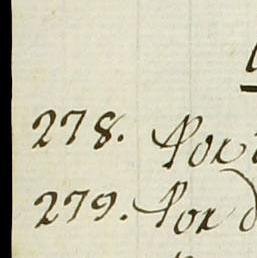 278. Por
279. Por